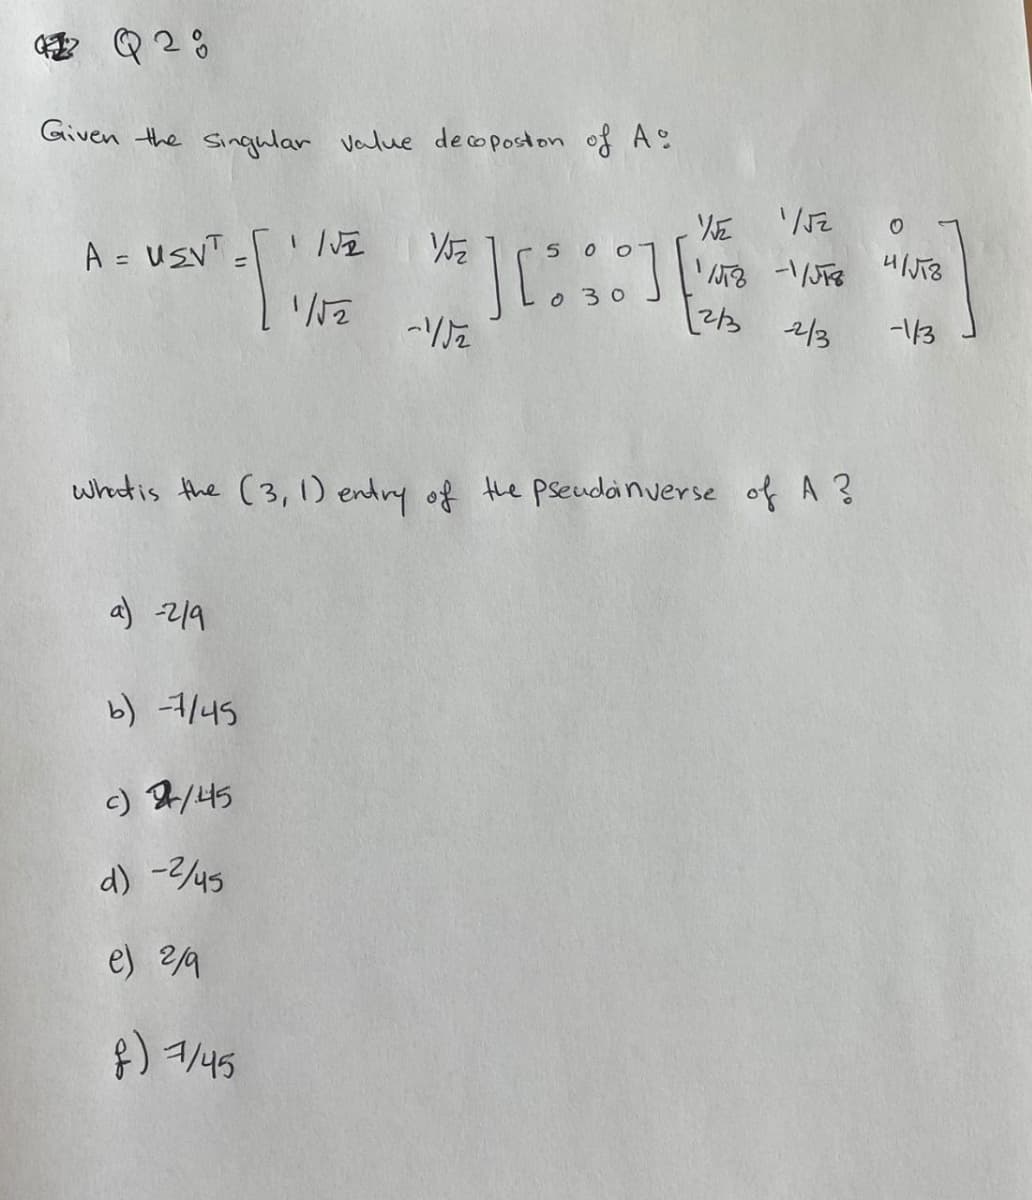 Q2:
Given the singular value decoposton of A:
A = UΣVᵀ = [ 1/√2 1/√2 ] [ 5 0 0 ] [ 1/√2 1/√2 0 ]
[ 1/√2 -1/√2 ] [ 0 3 0 ] [ 1/√18 -1/√18 4/√18 ]
[ 2/3 -2/3 -1/3 ]
what is the (3, 1) entry of the pseudoinverse of A?
a) -2/9
b) -7/45
c) 2/45
d) -2/45
e) 2/9
f) 7/45